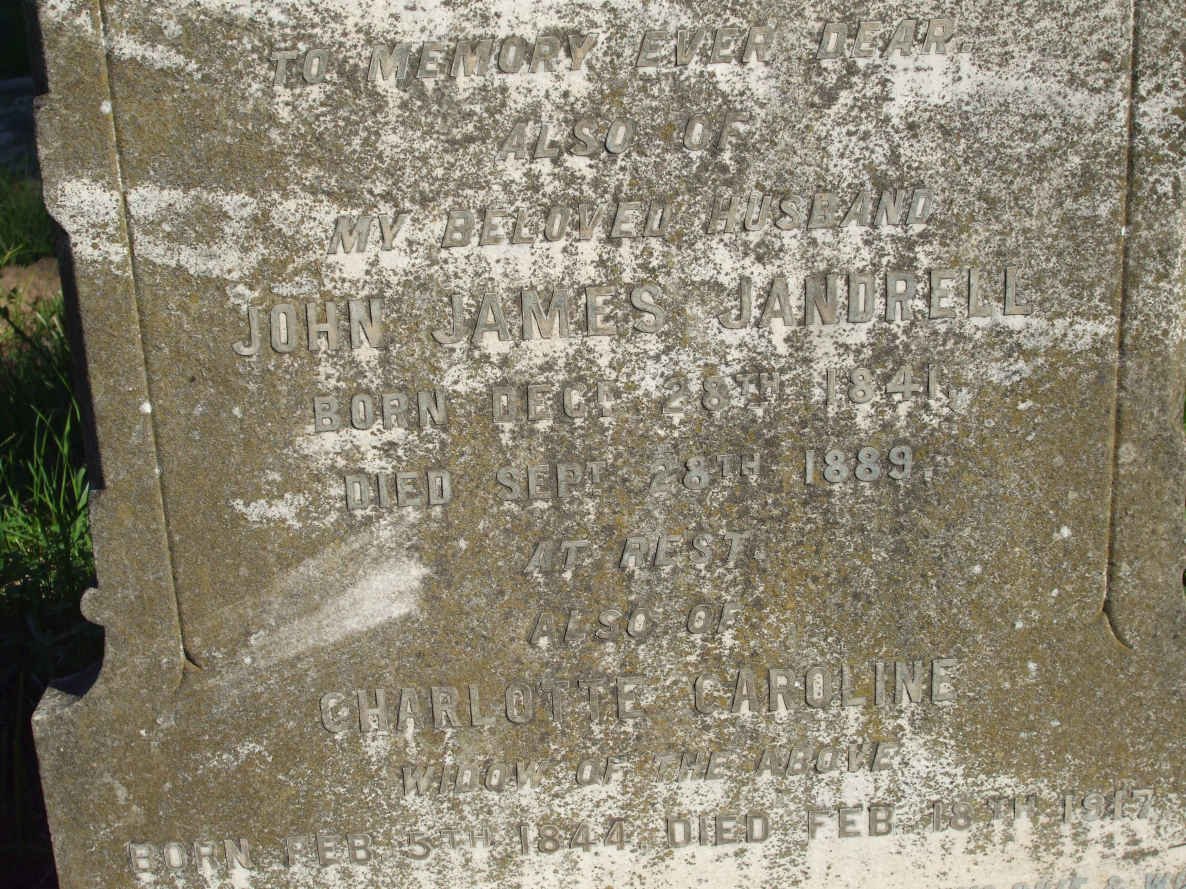 TO MEMORY EVER DEAR.
ALSO OF
MY BELOVED HUSBAND
JOHN JAMES JANDRELL
BORN DECR 28TH 1841.
DIED SEPT 28TH 1889.
AT REST.
ALSO OF
CHARLOTTE CAROLINE
WIDOW OF THE ABOVE
BORN FEB. 5TH 1844. DIED FEB. 18TH 1917